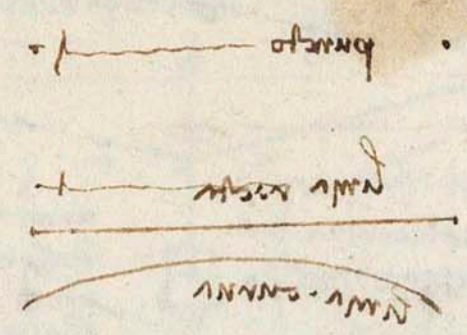 puncto
linia recta
linia curva